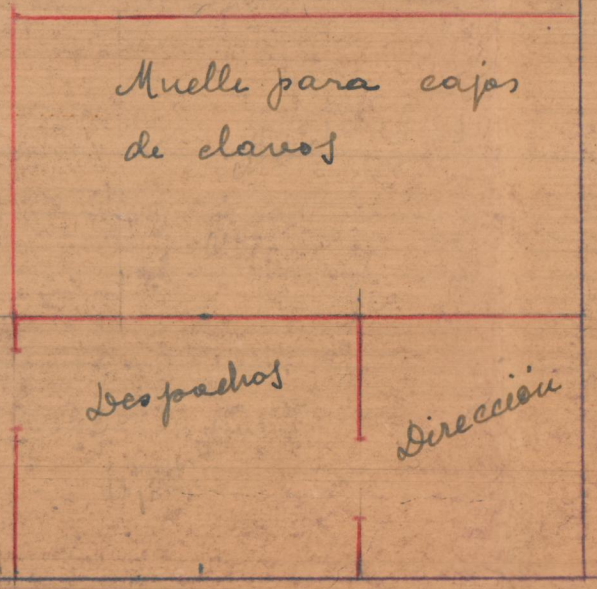 Muelle para cajas
de clavos
Despachos
Dirección